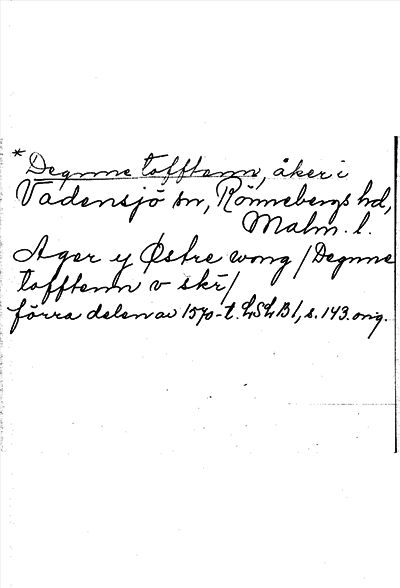 * Degnne tofftenn, åker i
Vadensjö sn, Rönnebergs hd,
Malm. l.
Ager y Østre wong / Degnne
tofftenn v skr /
förra delen av 1570-t. LSLB 1, s. 143. orig.